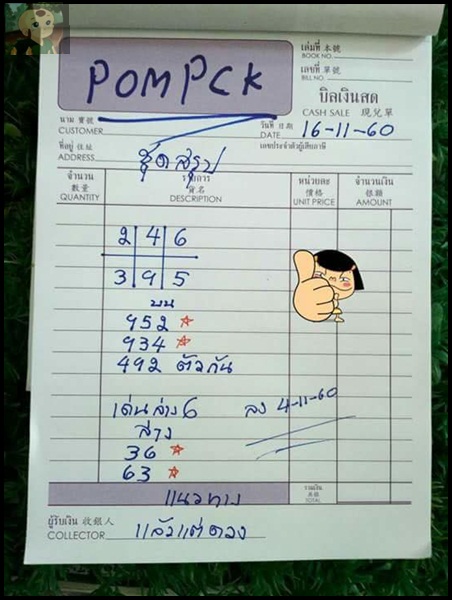 เล่มที่ 本號
BOOK NO.
POMPCK
เลขที่ 單號
BILL NO.
บิลเงินสด
CASH SALE 現兌單
นาม 寶號
CUSTOMER
วันที่ 日期
DATE 16-11-60
ที่อยู่ 住址
ADDRESS
เลขประจำตัวผู้เสียภาษี
ชุดสรุป
จำนวน รายการ หน่วยละ จำนวนเงิน
數量 貨名 價格 銀額
QUANTITY DESCRIPTION UNIT PRICE AMOUNT
2 4 6
3 9 5
บน
952
934
492 ตัวกัน
เด่นล่าง 6
ลง 4-11-60
ล่าง
36
63
รวมเงิน
TOTAL
แนวทาง
ผู้รับเงิน 收銀人
COLLECTOR
แล้วแต่ดวง